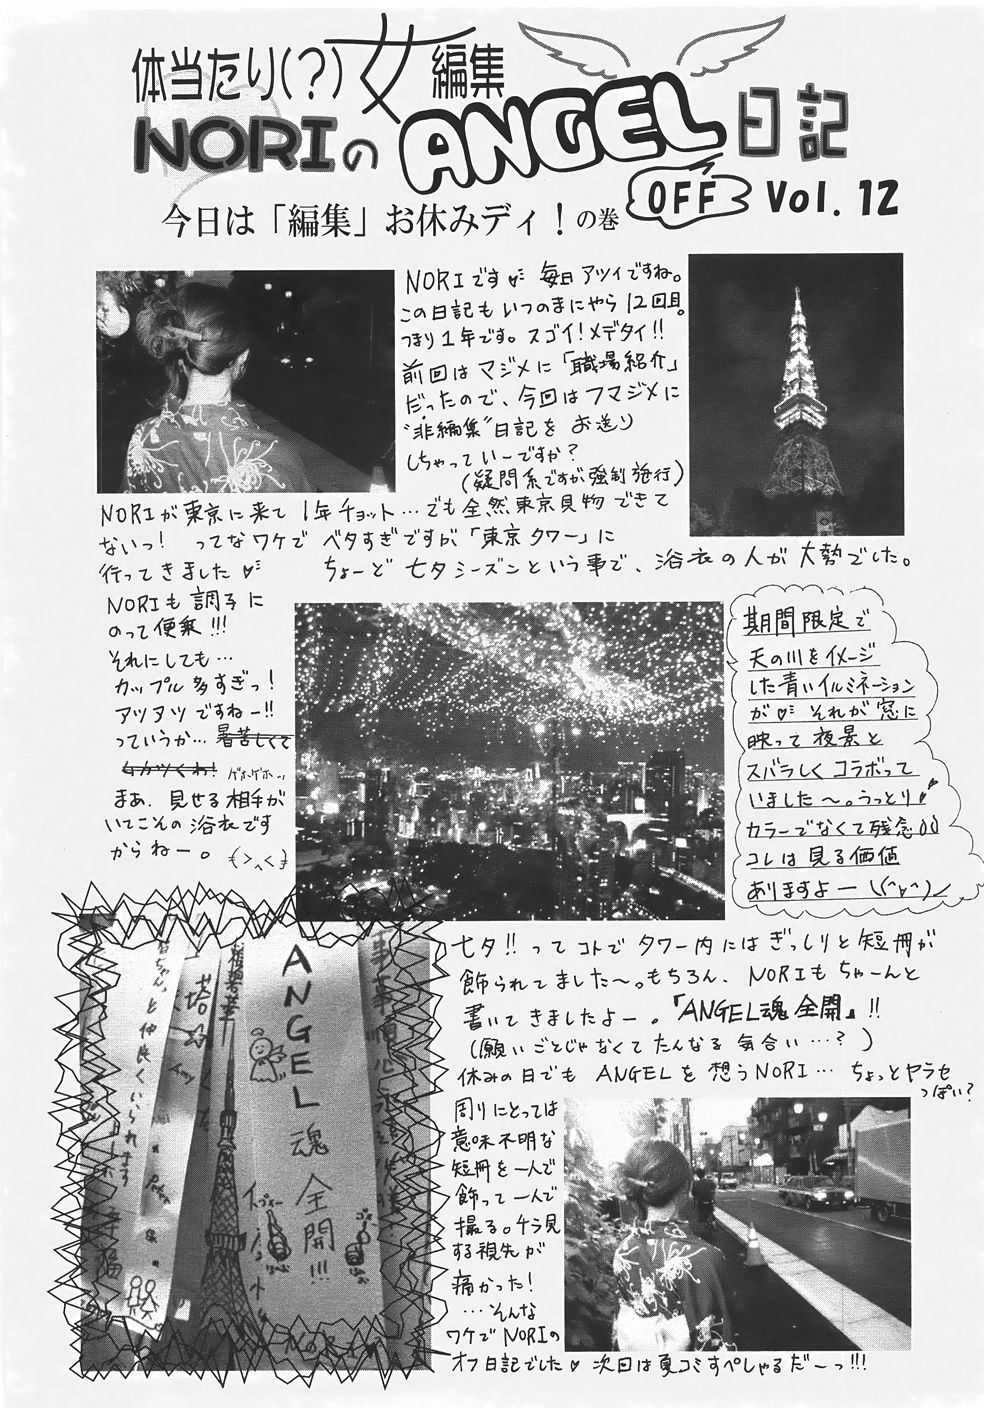 体当たり(?)女編集
NORIのANGEL日記
OFF Vol. 12
今日は「編集」お休みディ!の巻
NORIです 毎日アツイですね。
この日記もいつのまにやら12回目。
つまり1年です。スゴイ!メデタイ!!
前回はマジメに「職場紹介」
だったので、今回はフマジメに
"非編集"日記をお送り
しちゃっていーですか?
(疑問系ですが強制発行)
NORIが東京に来て1年チョット…でも全然東京見物できて
ないっ! ってなワケでベタすぎですが「東京タワー」に
行ってきました
ちょーど七夕シーズンという事で、浴衣の人が大勢でした。
NORIも調子に
のって便乗!!!
それにしても…
カップル多すぎっ!
アツアツですねー!!
っていうか…暑苦しくて
ムカツくわ! ゲホゲホ…
まあ、見せる相手が
いてこその浴衣です
からねー。(>ヘ<)
期間限定で
天の川をイメージ
した青いイルミネーション
が それが窓に
映って夜景と
スバラしくコラボって
いました~。うっとり
カラーでなくて残念
コレは見る価値
ありますよー\(^v^)ノ
七夕!!ってコトでタワー内にはぎっしりと短冊が
飾られてました~。もちろん、NORIもちゃーんと
書いてきましたよー。「ANGEL魂全開」!!
(願いごとじゃなくてたんなる気合い…?)
休みの日でもANGELを想うNORI…ちょっとヤラセ
っぽい?
周りにとっては
意味不明な
短冊を一人で
飾って一人で
撮る。チラ見
する視先が
痛かった!
…そんな
ワケでNORIの
オフ日記でした♥次回は夏コミすぺしゃるだーっ!!!
ANGEL魂全開!!!
ちゃん。と仲良くいられます
塔☆
Amy
Peter
幸福